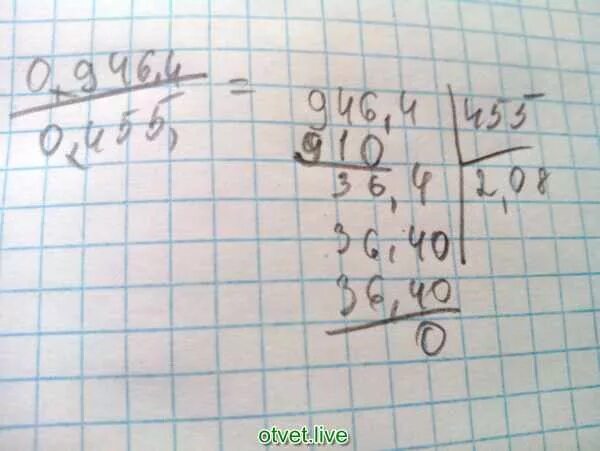 0,946,4
0,455,
=
946,4 455
910
36,4 2,08
36,40
36,40
0
otvet.live